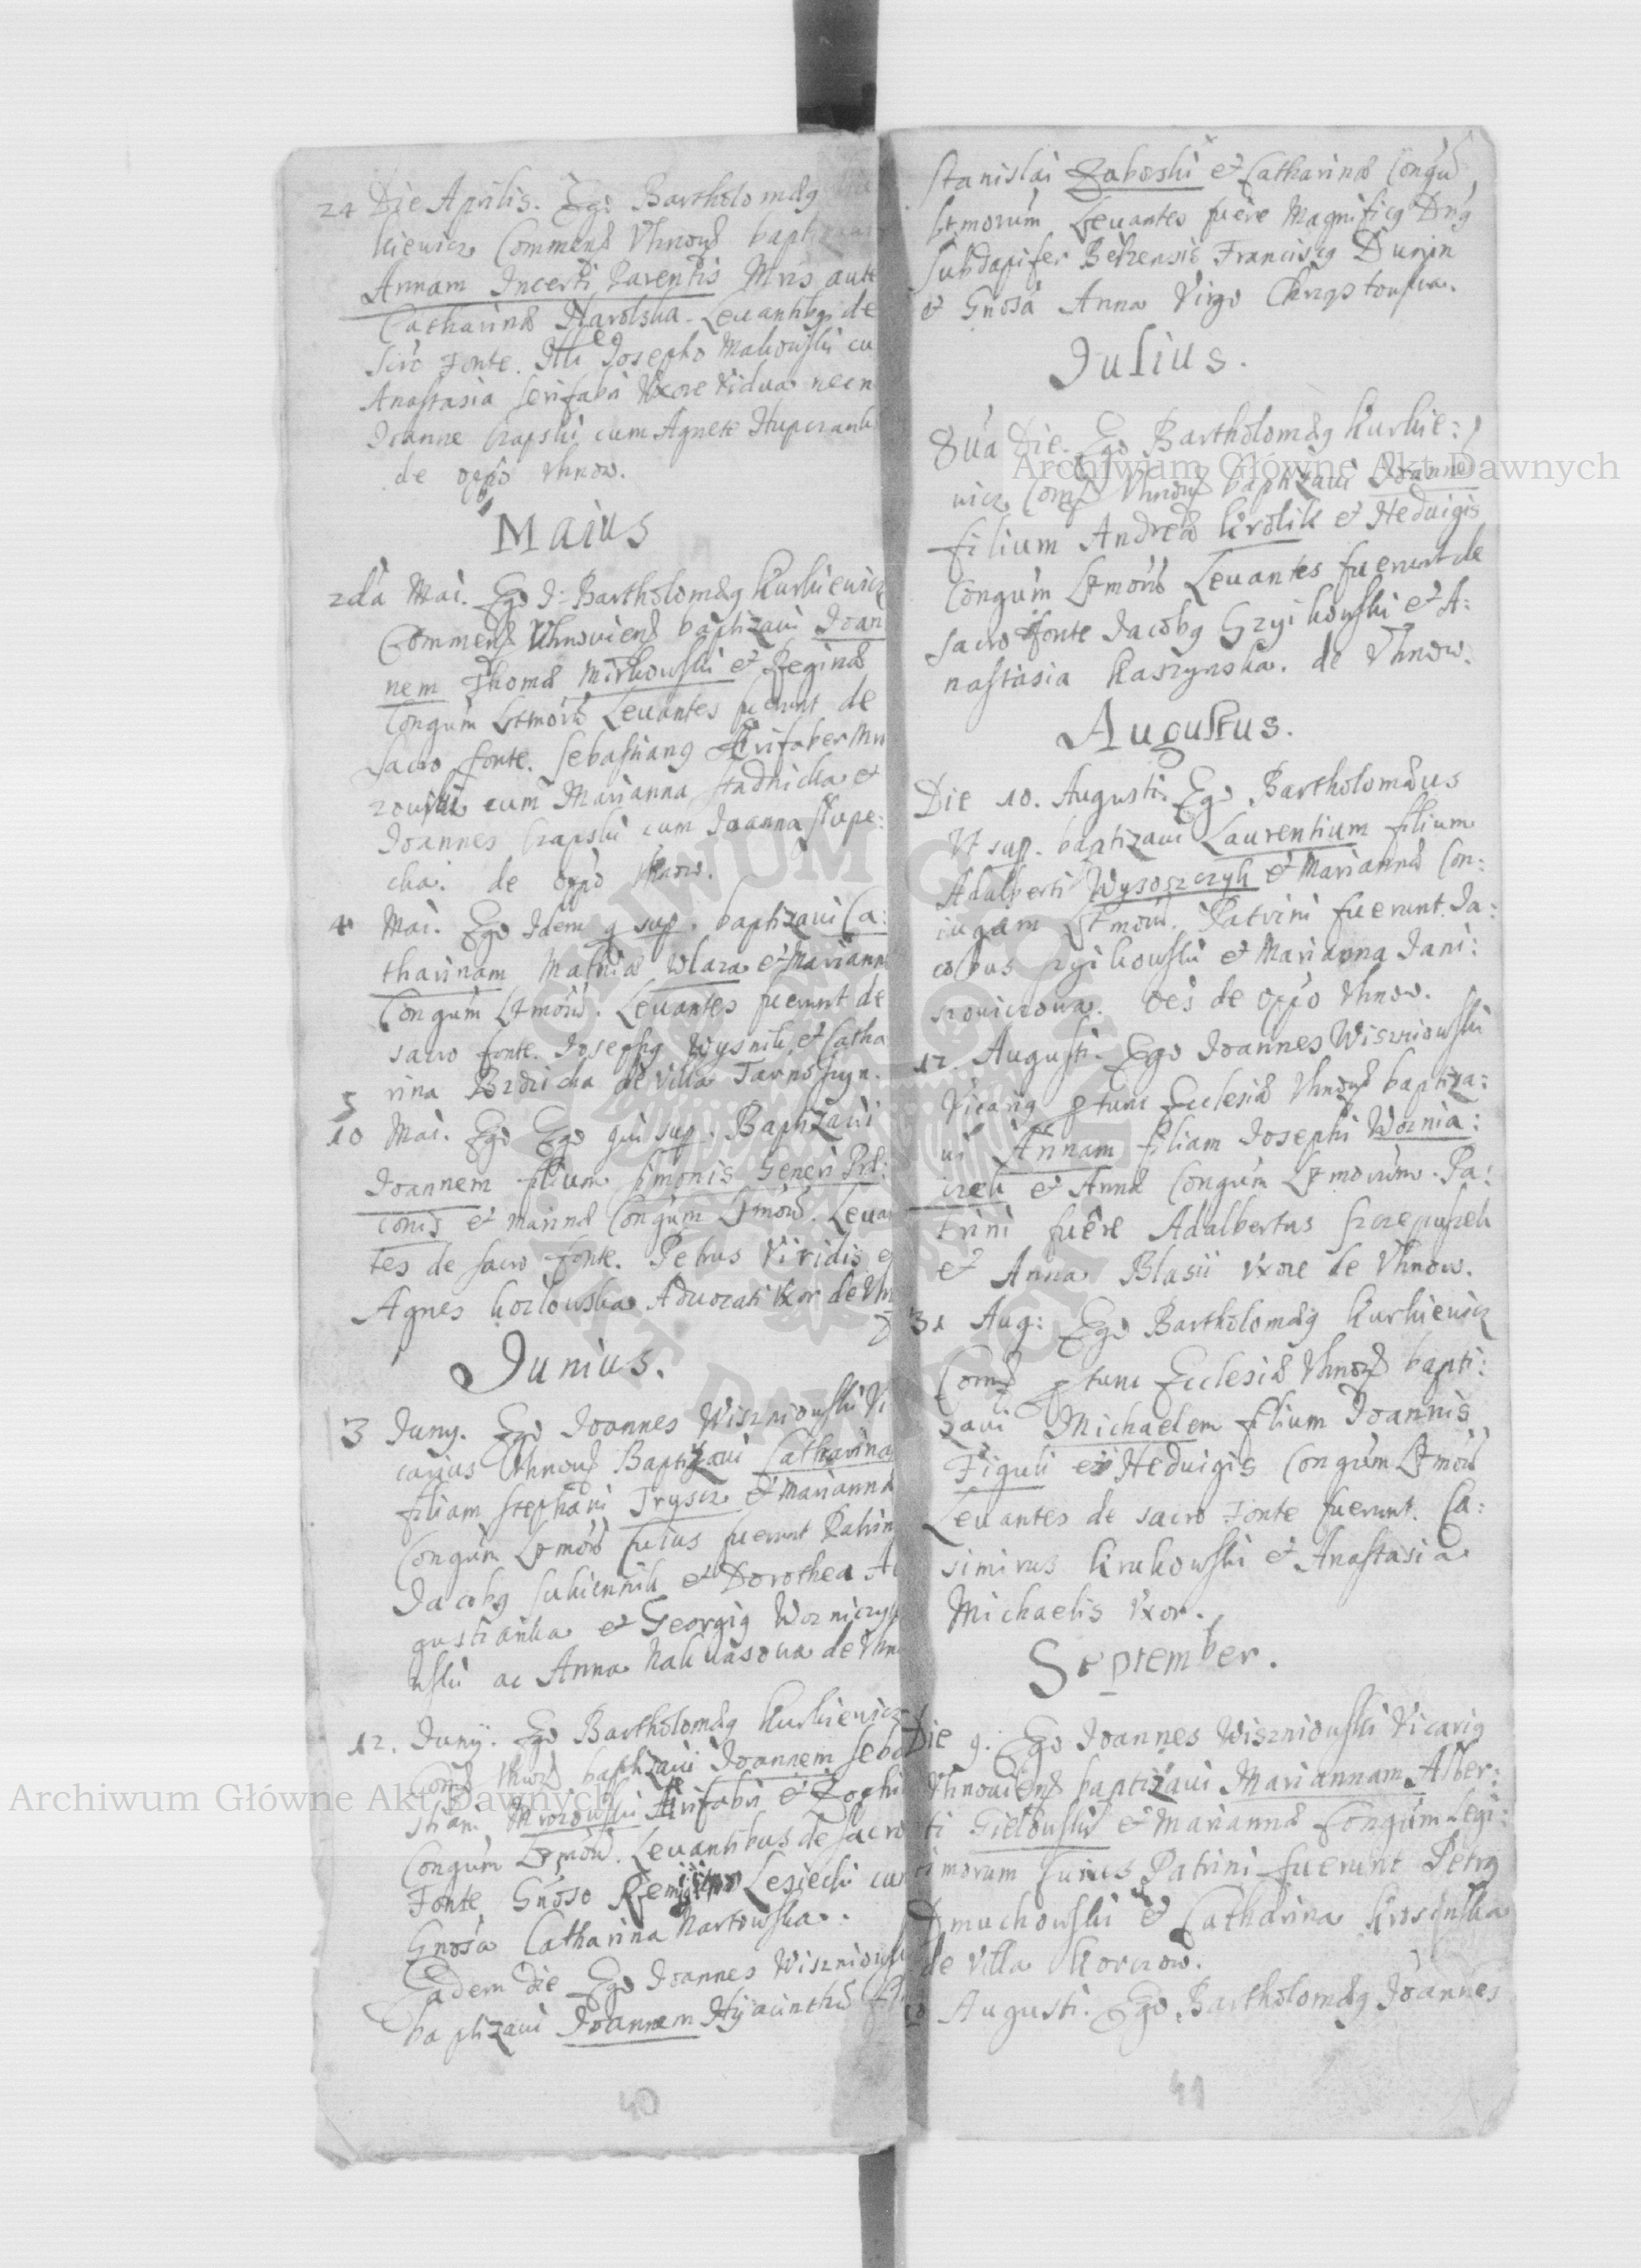 24 Die Aprilis. Ego Bartholomæg
kiewicz Commend Vhnow baptizavi
Annam Incerti Parentis Mris aute
Catharinæ Levantibg de
Scro Fonte. Josepho Makowski cu
Anastasia Serifabri Uxore Vidua necn
Joanne Czapski cum Agnete
de oppo Vhnow.
Maius
2da Mai. Ego J. Bartholomæg Kurkiewicz
Commend Vhnoviens baptizavi Joan
nem Thomæ Mirkowski et Reginæ
Congum Ltmoru Levantes fuerunt de
Sacro fonte. Sebastiang Serifaber Mro
zowski cum Marianna Stadnicka et
Joannes Czapski cum Joanna Slupe:
cka. de oppo Vhnow.
4 Mai. Ego Idem q sup. baptizavi Ca:
tharinam Mathiæ Wlaza et Mariann
Congum Ltmoru. Levantes fuerunt de
sacro fonte. Josephg Wysnik et Catha
rina de Villa Tarnoszyn.
5
10 Mai. Ego Ego qui sup. Baptizavi
Joannem filium Simonis Generi Præ:
conis et Marinæ Congum Ltmoru. Levan
tes de sacro fonte. Petrus Viridis e
Agnes Kozlowska Advocati Uxor de Vhn
Junius.
3 Juny. Ego Joannes Wiszniowski Vi
carius Vhnow Baptizavi Catharina
filiam Stephani Tryscz et Marianna
Congum Ltmoru Cuius fuerunt Patrin
Jacobg Sukiennik et Dorothea A
gustianka et Georgig Wozniczyk
nski ac Anna Nakvasova de Vhn
12. Junij. Ego Bartholomæg Kurkiewicz
Comd Vhnow baptizavi Joannem Seba
stian. Mrozowski Serifabri et Zophi
Congum Ltmoru. Levantibus de Sacro
Fonte Gnoso Lesiecki cum
Gnosa Catharina Nartowska.
Eadem Die Ego Joannes Wiszniowsk
baptizavi Joannem Hyacinthu
40
Stanislai Zaboski et Catharinæ Congu
Ltmorum Levantes fuere Magnificg Dng
Subdapifer Belzensis Franciscg Dunin
et Gnosa Anna Virgo
Julius.
8va Die. Ego Bartholomæg Kurkie:
wicz Comd Vhnow baptizavi Joanne
filium Andreæ Krolik et Hedvigis
Congum Ltmoru Levantes fuerunt de
Sacro fonte Jacobg Gryikowski et A:
nastasia Kaszynska. de Vhnow.
Augustus.
Die 10. Augusti. Ego Bartholomæus
Vt sup. baptizavi Laurentium filium
Adalberti Wysoszczyk et Mariannæ Con:
iugum Ltmoru. Patrini fuerunt. Ja:
cobus Gryikowski et Marianna Jani:
szowiczowa. oes de oppo Vhnow.
12. Augusti. Ego Joannes Wiszniowski
Vicarig ptunc Ecclesiæ Vhnow baptiza:
vi Annam filiam Josephi Woznia:
czek et Annæ Congum Ltmorum. Pa:
trini fuere Adalbertus
et Anna Blasii Uxore de Vhnow.
31 Aug: Ego Bartholomæg Kurkiewicz
Comd ptunc Ecclesiæ Vhnow bapti:
zavi Michaelem filium Joannis
Figuli et Hedvigis Congum Ltmoru
Levantes de sacro Fonte fuerunt. Ca:
simirus Krukowski et Anastasia
Michaelis Uxor.
September.
Die 9. Ego Joannes Wiszniowski Vicarig
Vhnoviens baptizavi Mariannam Alber:
ti Gielowski et Mariannæ Congum Legi:
timorum Cuius Patrini fuerunt Petrg
Dmuchowski et Catharina Krosinska
de Villa Korczow.
10 Augusti. Ego Bartholomæg Joannes
41
Archiwum Główne Akt Dawnych
Archiwum Główne Akt Dawnych
ARCHIWUM GŁÓWNE AKT DAWNYCH